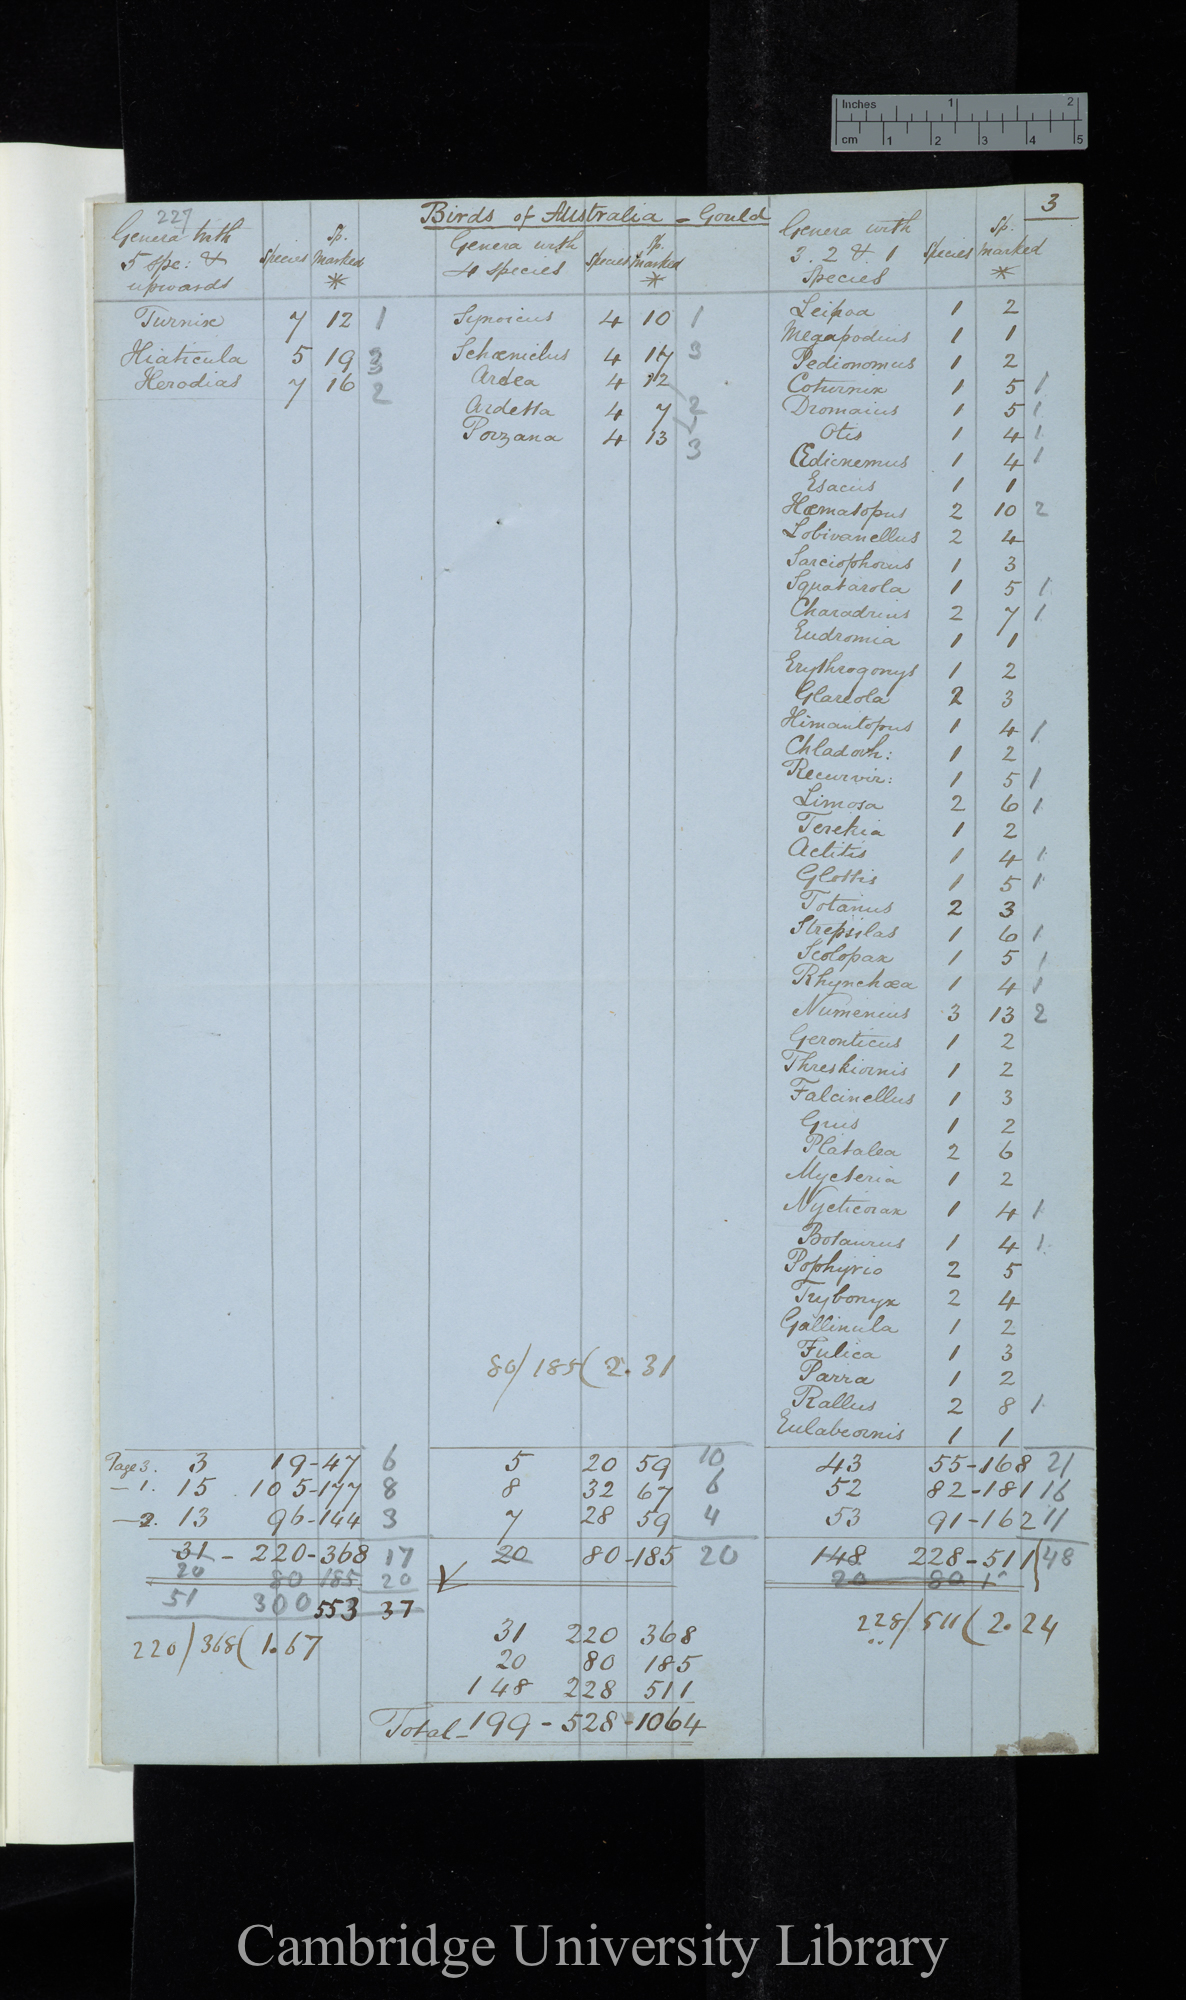 Inches 1 2
cm 1 2 3 4 5
3
227
Birds of Australia - Gould
Genera with 5 spe: & upwards | Species | Sp. marked *
Turnix 7 12 1
Hiaticula 5 19 3
Herodias 7 16 2
Genera with 4 species | Species | Sp. marked *
Synoicus 4 10 1
Schœniclus 4 17 3
Ardea 4 12
Ardetta 4 7 2
Porzana 4 13 3
Genera with 3. 2 & 1 Species | Species | Sp. marked *
Leipoa 1 2
Megapodius 1 1
Pedionomus 1 2
Coturnix 1 5 1
Dromaius 1 5 1
Otis 1 4 1
Œdicnemus 1 4 1
Esacus 1 1
Hœmatopus 2 10 2
Lobivanellus 2 4
Sarciophorus 1 3
Squatarola 1 5 1
Charadrius 2 7 1
Eudromia 1 1
Erythrogonys 1 2
Glareola 2 3
Himantopus 1 4 1
Chladorh: 1 2
Recurvir: 1 5 1
Limosa 2 6 1
Terekia 1 2
Actitis 1 4 1
Glottis 1 5 1
Totanus 2 3
Strepsilas 1 6 1
Scolopax 1 5 1
Rhynchœa 1 4 1
Numenius 3 13 2
Geronticus 1 2
Threskiornis 1 2
Falcinellus 1 3
Grus 1 2
Platalea 2 6
Mycteria 1 2
Nycticorax 1 4 1
Botaurus 1 4 1
Pophyrio 2 5
Trybonyx 2 4
Gallinula 1 2
Fulica 1 3
Parra 1 2
Rallus 2 8 1
Eulabeornis 1 1
80/185(2.31
Page 3. 3 19-47 6
— 1. 15 105-177 8
— 2. 13 96-144 3
31 - 220-368 17
20 80 185 20
51 300 553 37
220/368(1.67
5 20 59 10
8 32 67 6
7 28 59 4
20 80-185 20
43 55-168 21
52 82-181 16
53 91-162 11
148 228-511 48
20 80 1
228/511(2.24
31 220 368
20 80 185
148 228 511
Total - 199 - 528 - 1064
Cambridge University Library